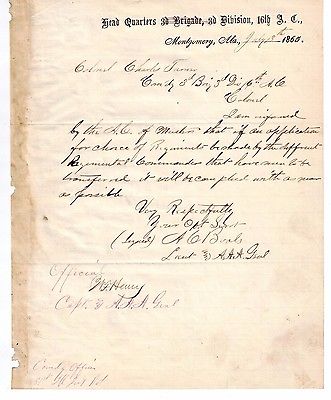 Head Quarters 3d Brigade, 3d Division, 16th A. C.,
Montgomery, Ala., July 8th 1865.
Colonel Charles Turner
Comdg 3d Brig 3d Div 16th A.C
Colonel
I am informed
by the A.C. of Musters that if an application
for choice of Regiments be made by the different
Regimental Commanders that have men to be
transferred it will be complied with as near
as possible
Very Respectfully
Your Obt Servt
(signed) A C
Lieut & A.A.A. Genl
Official
Henry
Capt & A A A Genl
Comdg Officer